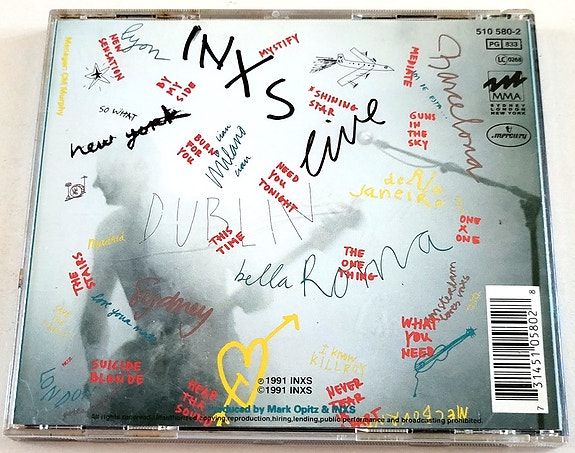 Manager: CM Murphy
NEW
SENSATION
Lyon
INXS
MYSTIFY
510 580-2
PG 833
LC 0268
BY
MY
SIDE
* SHINING
STAR
MEDIATE
Charcelona
MMA
SYDNEY
LONDON
NEW YORK
mercury
SO WHAT
new york
live
BURN
FOR
YOU
Milano
GUNS
IN
THE
SKY
NEED
YOU
TONIGHT
de Rio
Janeiro
DUBLIN
THIS
TIME
ONE
X
ONE
Madrid
THE
STAIRS
bella Roma
THE
ONE
THING
Sydney
WHAT
YOU
NEED
SUICIDE
BLONDE
I know
KILLROY
HEAR
THAT
SOUND
NEVER
TEAR
APART
℗ 1991 INXS
© 1991 INXS
Produced by Mark Opitz & INXS
copying, reproduction, hiring, lending, public performance and broadcasting prohibited.
7 31451 05802 8